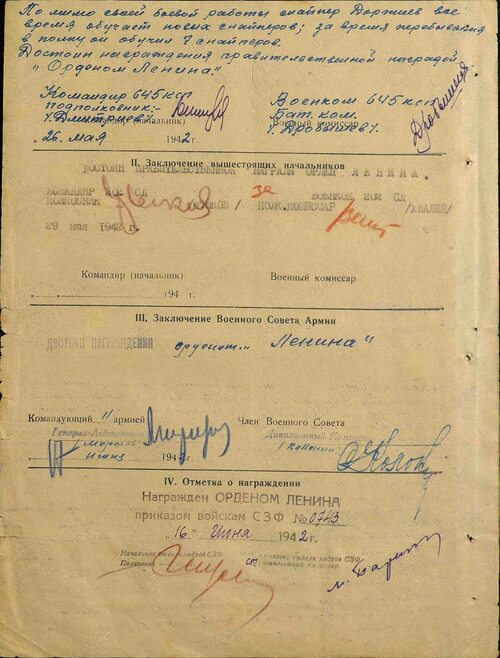 По мимо своей боевой работы снайпер Доржиев все
время обучает новых снайперов; за время пребывания
в полку он обучил 7 снайперов.
Достоин награждения правительственной наградой
„Орденом Ленина“
Командир 645 ксп Военком 645 ксп
подполковник:- Бат. ком.
/Дмитриев/ (начальник) Военный комиссар /Дробышев/
„26“ мая 1942 г.
II. Заключение вышестоящих начальников
ДОСТОИН ПРАВИТЕЛЬСТВЕННОЙ НАГРАДЫ ОРДЕН ЛЕНИНА.
КОМАНДИР 202 СД ВОЕНКОМ 202 СД
ПОЛКОВНИК за ПОЛК.КОМИССАР
29 мая 1942 г.
Командир (начальник) Военный комиссар
194 г.
III. Заключение Военного Совета Армии
ДОСТОИН НАГРАЖДЕНИЯ орденом „Ленина“
Командующий 11 армией Член Военного Совета
Генерал-Лейтенант Дивизионный Комиссар
194 г.
IV. Отметка о награждении
Награжден ОРДЕНОМ ЛЕНИНА
приказом войскам СЗФ № 0743
„16“ Июня 1942 г.
Начальник отдела кадров СЗФ Комиссар отдела кадров СЗФ
Полковник ст батальонный Комиссар